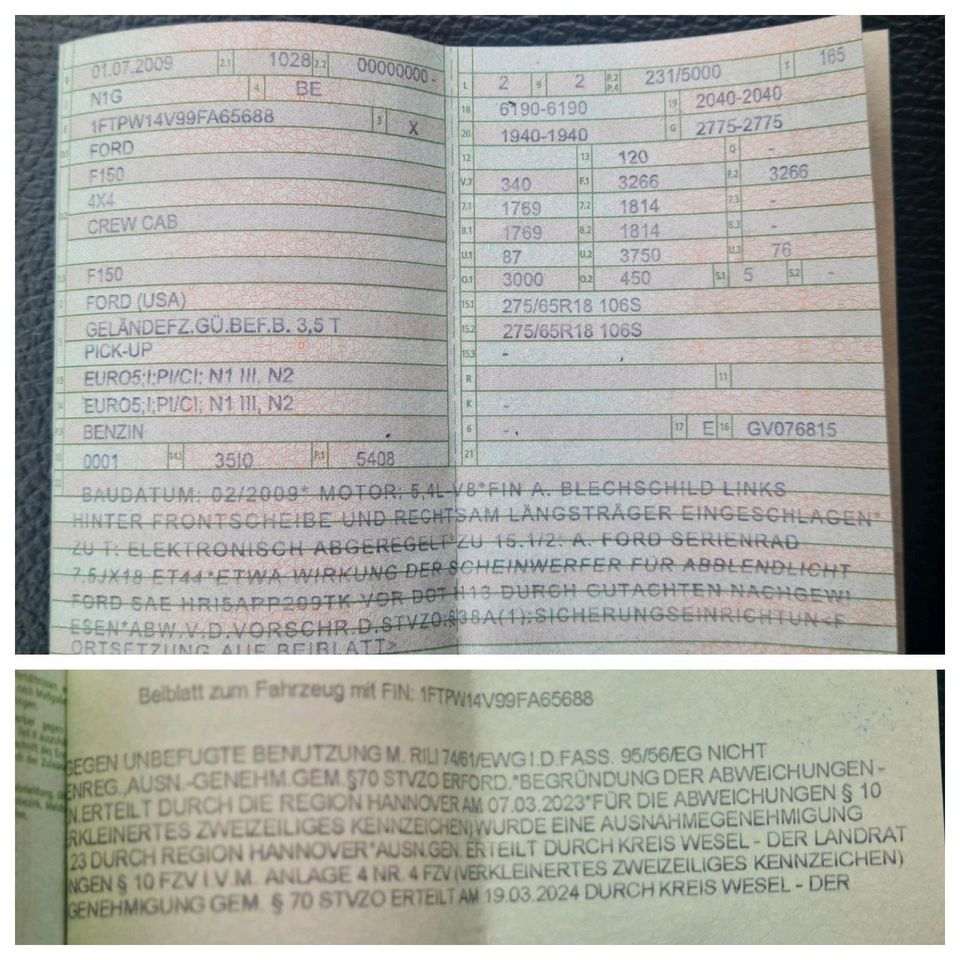 B 01.07.2009 2.1 1028 2.2 00000000 -
J N1G 4 BE
E 1FTPW14V99FA65688 3 X
D.1 FORD
F150
4X4
D.2 CREW CAB
D.3 F150
2 FORD (USA)
GELÄNDEFZ.GÜ.BEF.B. 3,5 T
PICK-UP
EURO5;I;PI/CI; N1 III, N2
14 EURO5;I;PI/CI; N1 III, N2
P.3 BENZIN
10 0001 14.1 35I0 P.1 5408
22
L 2 9 2 P.2 P.4 231/5000 T 165
18 6190-6190 19 2040-2040
20 1940-1940 G 2775-2775
12 13 120 Q -
V.7 340 F.1 3266 F.2 3266
7.1 1769 7.2 1814 7.3 -
8.1 1769 8.2 1814 8.3 -
U.1 87 U.2 3750 U.3 76
O.1 3000 O.2 450 S.1 5 S.2 -
15.1 275/65R18 106S
15.2 275/65R18 106S
15.3 -
R 11
K -
6 - 17 E 16 GV076815
21
BAUDATUM: 02/2009* MOTOR: 5,4L V8*FIN A. BLECHSCHILD LINKS
HINTER FRONTSCHEIBE UND RECHTSAM LÄNGSTRÄGER EINGESCHLAGEN*
ZU T: ELEKTRONISCH ABGEREGELT*ZU 15.1/2: A. FORD SERIENRAD
7,5JX18 ET44*ETWA WIRKUNG DER SCHEINWERFER FÜR ABBLENDLICHT
FORD SAE HRI5APP209TK VOR DOT H13 DURCH GUTACHTEN NACHGEWI
ESEN*ABW.V.D.VORSCHR.D.STVZO:§38A(1);SICHERUNGSEINRICHTUN<F
ORTSETZUNG AUF BEIBLATT>
Beiblatt zum Fahrzeug mit FIN: 1FTPW14V99FA65688
GEGEN UNBEFUGTE BENUTZUNG M. RILI 74/61/EWG I.D.FASS. 95/56/EG NICHT
ENREG.,AUSN.-GENEHM.GEM.§70 STVZO ERFORD.*BEGRÜNDUNG DER ABWEICHUNGEN -
N.ERTEILT DURCH DIE REGION HANNOVER AM 07.03.2023*FÜR DIE ABWEICHUNGEN § 10
RKLEINERTES ZWEIZEILIGES KENNZEICHEN) WURDE EINE AUSNAHMEGENEHMIGUNG
23 DURCH REGION HANNOVER*AUSN.GEN. ERTEILT DURCH KREIS WESEL - DER LANDRAT
NGEN § 10 FZV I.V.M. ANLAGE 4 NR. 4 FZV (VERKLEINERTES ZWEIZEILIGES KENNZEICHEN)
GENEHMIGUNG GEM. § 70 STVZO ERTEILT AM 19.03.2024 DURCH KREIS WESEL - DER